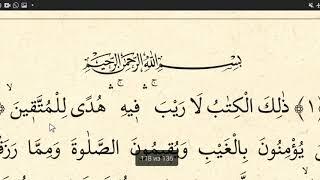 بِسْمِ اللّٰهِ الرَّحْمٰنِ الرَّحِيْمِ
﴿١﴾ ذٰلِكَ الْكِتٰبُ لَا رَيْبَ ۛ فِيهِ ۛ هُدًى لِلْمُتَّقِينَ ۙ
يُؤْمِنُونَ بِالْغَيْبِ وَيُقِيمُونَ الصَّلٰوةَ وَمِمَّا
118 из 136